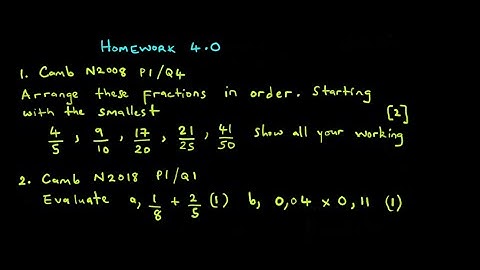 Homework 4.0
1. Camb N2008 P1/Q4
Arrange these fractions in order. Starting
with the smallest [2]
4/5, 9/10, 17/20, 21/25, 41/50 show all your working
2. Camb N2018 P1/Q1
Evaluate a, 1/8 + 2/5 (1) b, 0,04 x 0,11 (1)